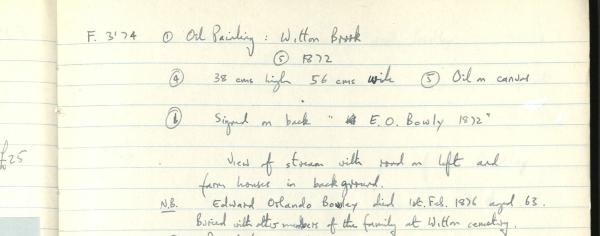 F. 3'74 ① Oil Painting : Witton Brook
⑤ 1872
④ 38 cms high 56 cms wide ⑤ Oil on canvas
⑥ Signed on back " E.O. Bowly 1872"
View of stream with road on left and
farm houses in background.
£25
N.B. Edward Orlando Bowley died 1st. Feb. 1876 aged 63.
Buried with other members of the family at Witton cemetery.